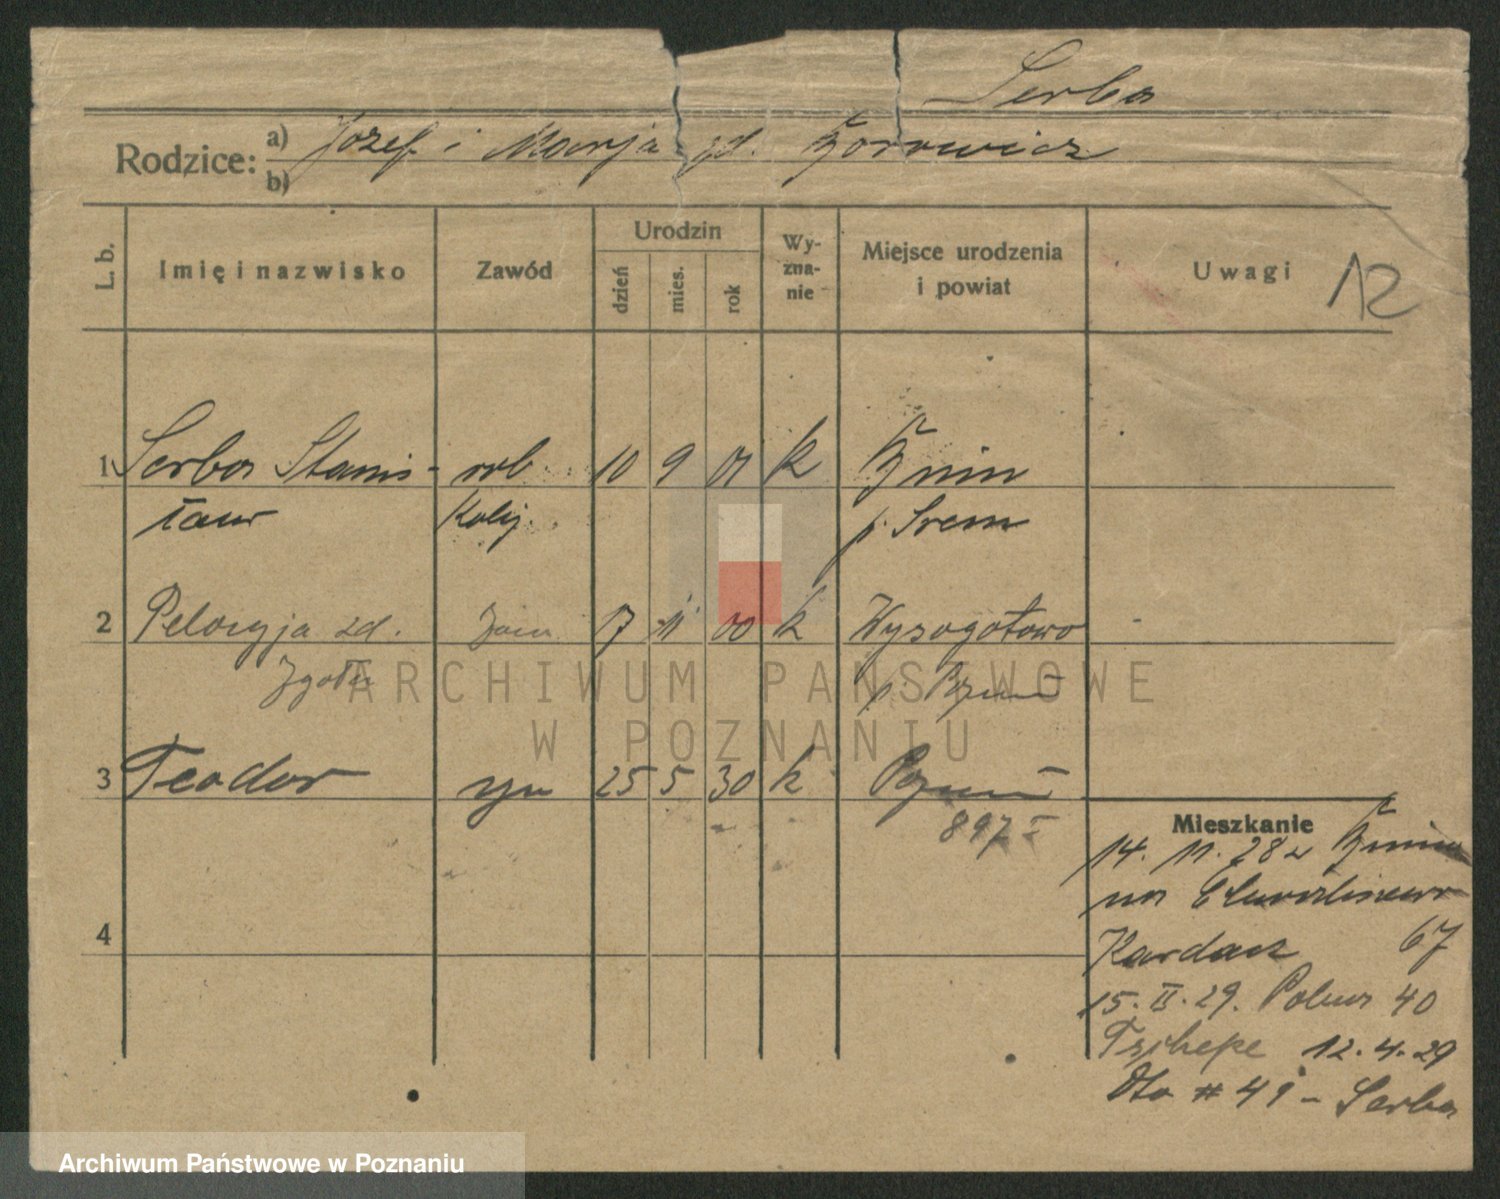 Serba
Rodzice: a) Józef i Marja zd.
b)
L. b. Imię i nazwisko Zawód Urodzin dzień mies. rok Wy-zna-nie Miejsce urodzenia i powiat Uwagi 12
1 Serba Stanis- rob 10 9 01 k Żnin
ław kolej. p. Śrem
2 Pelagja zd. 17 11 00 k Wysogotowo
p. Pozn
3 Teodor syn 25 5 30 k Pozn
897
4
Mieszkanie
14. 11. 28 z
na
Kardasz 67
15. II. 29. Polna 40
12. 4. 29
Dto # 41 - Serba
ARCHIWUM PAŃSTWOWE
W POZNANIU
Archiwum Państwowe w Poznaniu